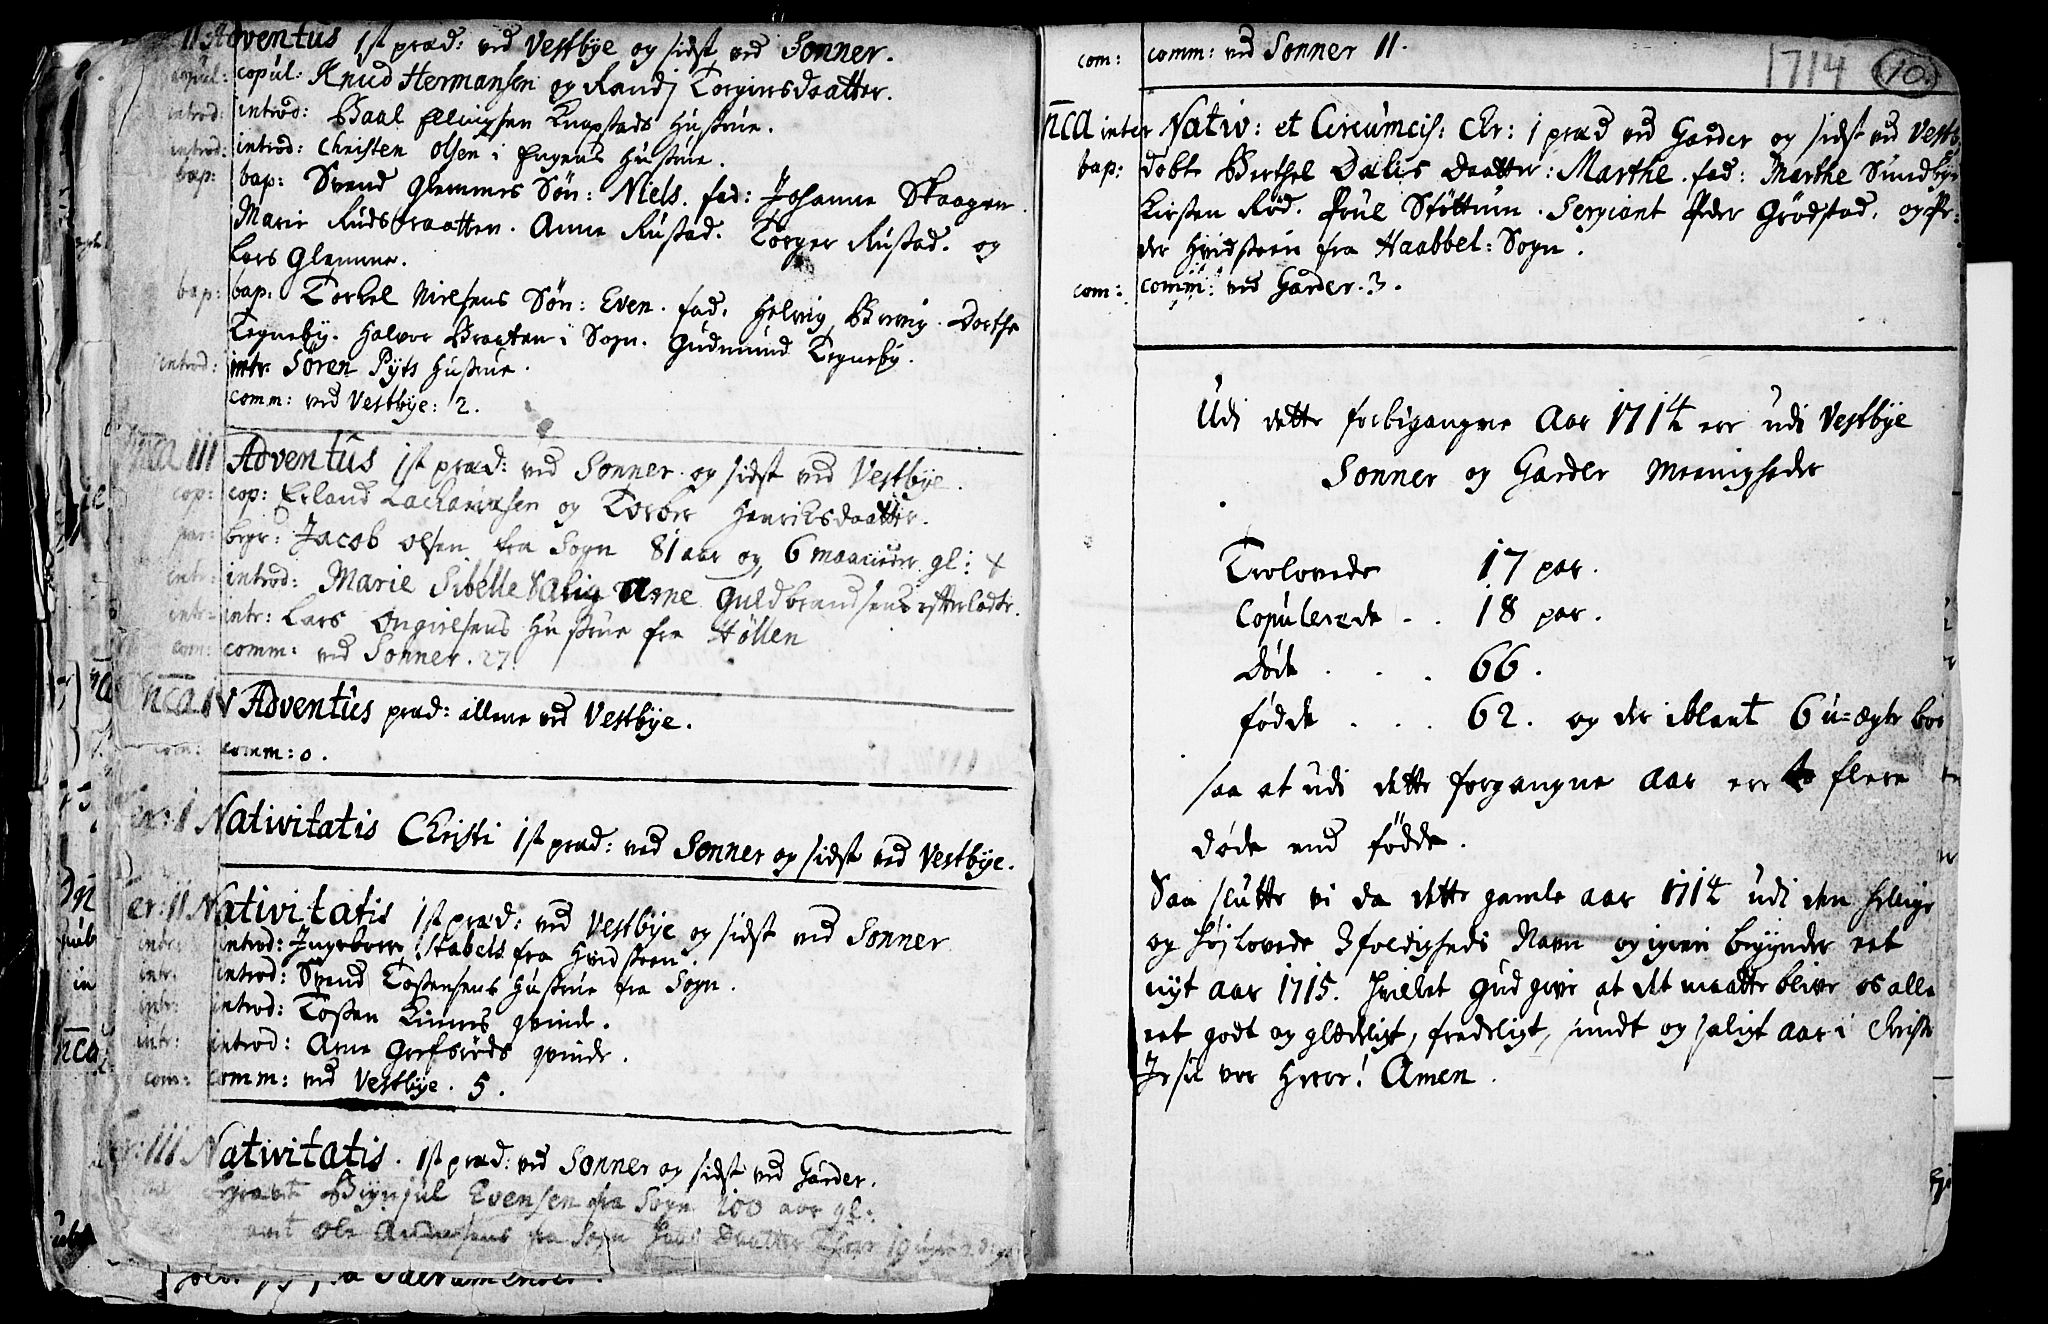 II Adventus 1st præd: ved Vestbÿe og sidst ved Sonner.
copul: copul: Knud Hermansen og Randj Torgiersdaatter.
introd: introd: Paal Ellingsen Knapstads Hustrue.
introd: introd: Christen Olsen i Engens Hustrue.
bap: bap: Svend Glemmes Søn: Niels. fad: Johanne Skaagen
Marie Rudsbraatten. Anne Rustad. Torger Rustad. og
Lars Glemme.
bap: bap: Torkel Nielsens Søn: Even. fad: Helvig Brevig. Dorthe
Tegneby. Halvor Braaten i Sogn. Gudmund Tegneby.
introd: intr: Sören Pÿts Hustrue.
comm: ved Vestbÿe: 2.
nca III Adventus 1st præd: ved Sonner og sidst ved Vestbÿe.
cop: cop: Erland Zachariasen og Torber Henriksdaatter.
begr: Jacob Olsen fra Sogn 81 aar og 6 maaneder gl:
intr: introd: Marie Sibelle Salig Arne Guldbrandsens efterladte.
intr: intr: Lars Engvelsens Hustrue fra Höllen
com: comm: ved Sonner. 27.
nca IV Adventus præd: allene ved Vestbÿe.
com: comm: 0.
Fer: I Nativitatis Christi 1st præd: ved Sonner og sidst ved Vestbÿe.
Fer: II Nativitatis 1st præd: ved Vestbÿe og sidst ved Sonner
intr: introd: Ingeborre Stabels fra Hvidsteen.
intr: introd: Svend Tostensens Hustrue fra Sogn.
intr: introd: Tosten Kinnes qvinde.
intr: introd: Arne Grefsröds qvinde.
com: comm: ved Vestbÿe. 5.
r: III Nativitatis. 1st præd: ved Sonner og sidst ved Garder.
Evensen fra Sogn 100 aar gl:
Ole Andersens fra Sogn Daatter
Sacramenter.
1714 10.
com: comm: ved Sonner 11.
nca inter Nativ: et Circumcis: Chr: 1 præd ved Garder og sidst ved Vestb
bap: døbt Berthel Dalis Daatter: Marthe. fad: Marthe Sundbye
Kirsten Rød. Poul Støttum. Sergiant Peder Grödstad. og Pe-
der Hvidsteen fra Haabbel: Sogn.
com: comm: ved Garder. 3.
Udi dette forbigangne Aar 1714 ere udi Vestbÿe
Sonner og Garder Meenigheder
Trolovede 17 par.
Copulerede . . 18 par.
døde . . . 66.
fødde . . . 62. og der iblant 6 u=ægte bör
saa at udi dette forgangne Aar ere flere
døde end födde.
Saa slutte vi da dette gamle aar 1714 udi den hellige
og Höjlovede 3foldigheds Navn og igien begÿnder eet
nÿt aar 1715. hvilket Gud give at det maatte blive os alle
eet godt og glædeligt, fredeligt, sundt og saligt aar i Christo
Jesu vor Herre! Amen.